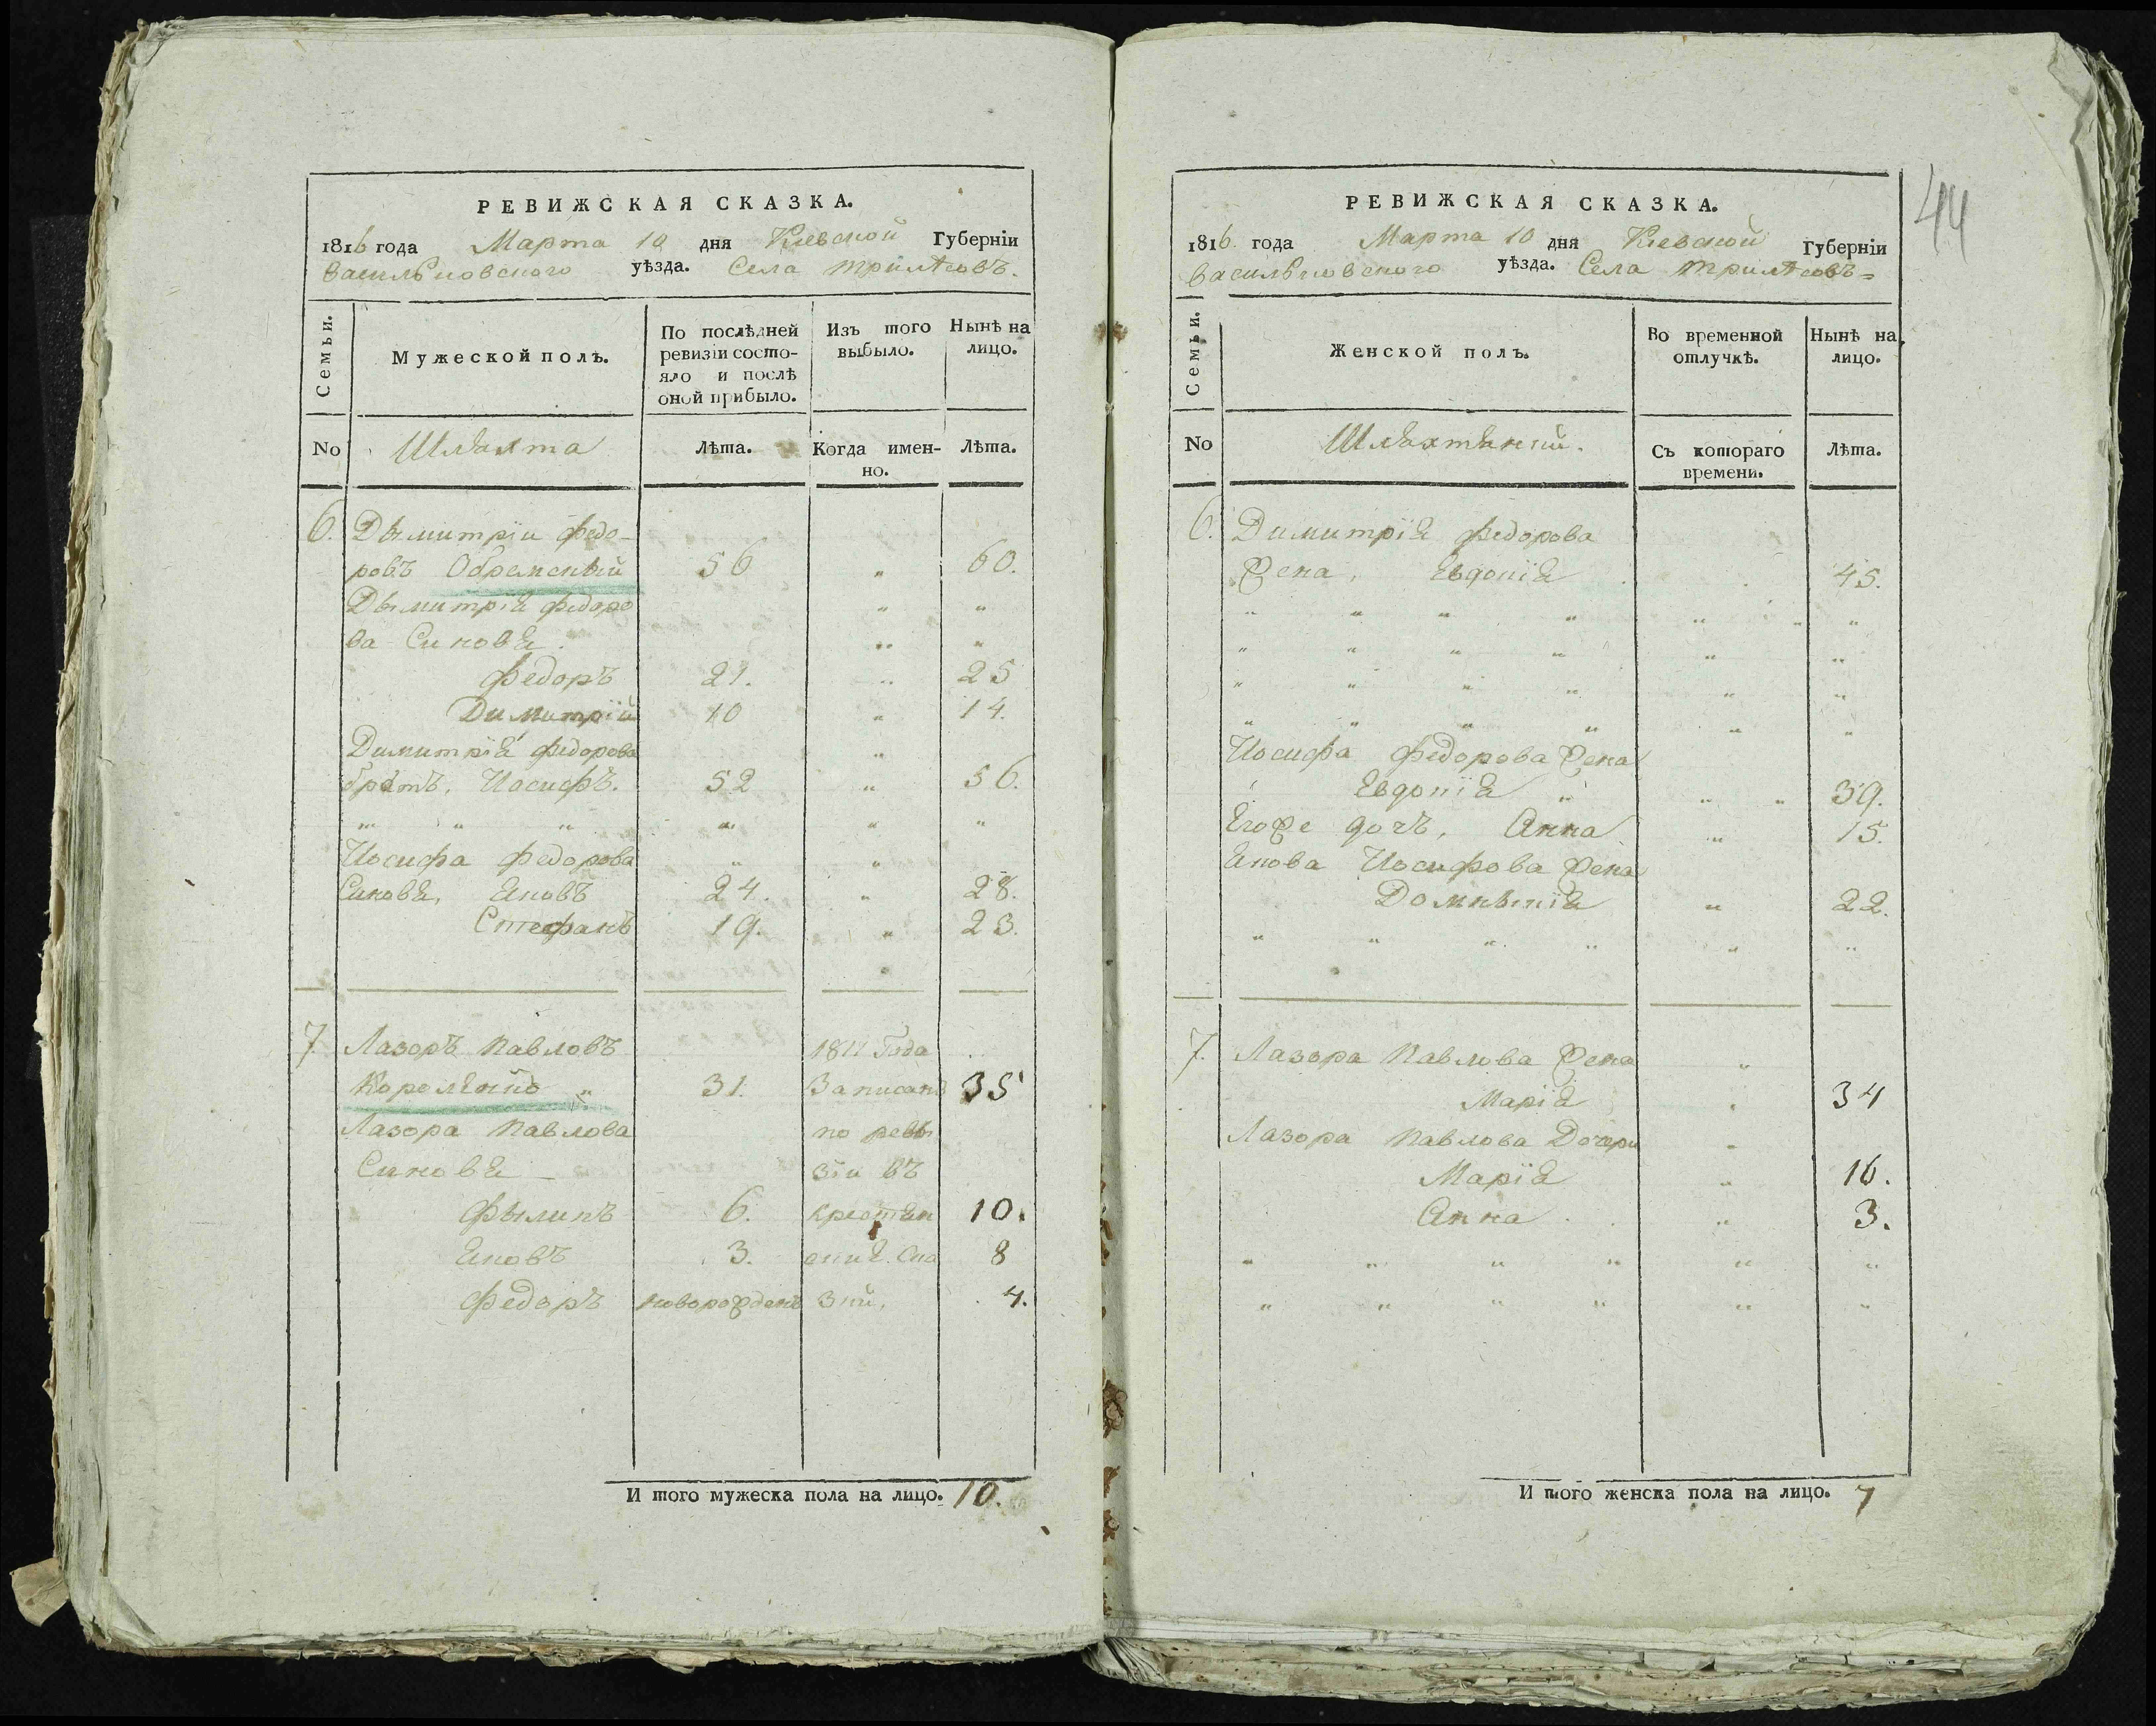 РЕВИЖСКАЯ СКАЗКА.
1816 года Марта 10 дня Кіевской Губерніи
Васильковского уѣзда. Села Трилѣсовъ.
Семьи.
Мужеской полъ.
По послѣдней ревизіи состо-
яло и послѣ
оной прибыло.
Изъ того
выбыло.
Нынѣ на
лицо.
No
Шляхта
Лѣта.
Когда имен-
но.
Лѣта.
6. Дымитрїи Федо-
ровъ Обременкый 56 " 60.
Дымитрїя Федоро " "
ва Синовя. " "
Федоръ 21. " 25
Димитрїй 10 " 14.
Димитрїя Федорова "
братъ, Иосифъ. 52 " 56.
" " " " " "
Иосифа Федорова " "
Синовя, Яковъ 24. " 28.
Стефанъ 19. " 23.
7. Лазоръ Павловъ 1811 Года
Короленко " 31. Записанъ 35
Лазора Павлова по ревы
Синовя зїи въ
Филипъ 6. крестян 10.
Яковъ 3. скик. Ска 8
Федоръ новорожденъ зкй, 4.
И того мужеска пола на лицо. 10.
44
РЕВИЖСКАЯ СКАЗКА.
1816. года Марта 10 дня Кіевской Губерніи
Васильковского уѣзда. Села Трилѣсовъ=
Семьи.
Женской полъ.
Во временной
отлучкѣ.
Нынѣ на
лицо.
No
Шляхтянкй.
Съ котораго
времени.
Лѣта.
6. Димитрїя Федорова
Жена, Евдокїя 45.
" " " " " " "
" " " " " "
" " " " " "
" " " " " "
Иосифа Федорова Жена
Евдокїя " " " 39.
Егоже дочъ, Анна " 15.
Якова Иосифова Жена
Домникїя " 22.
" " " " " "
7. Лазора Павлова Жена "
Марїя " 34
Лазора Павлова Дочери "
Марїя " 16.
Анна " 3.
" " " " " "
" " " " " "
И того женска пола на лицо. 7